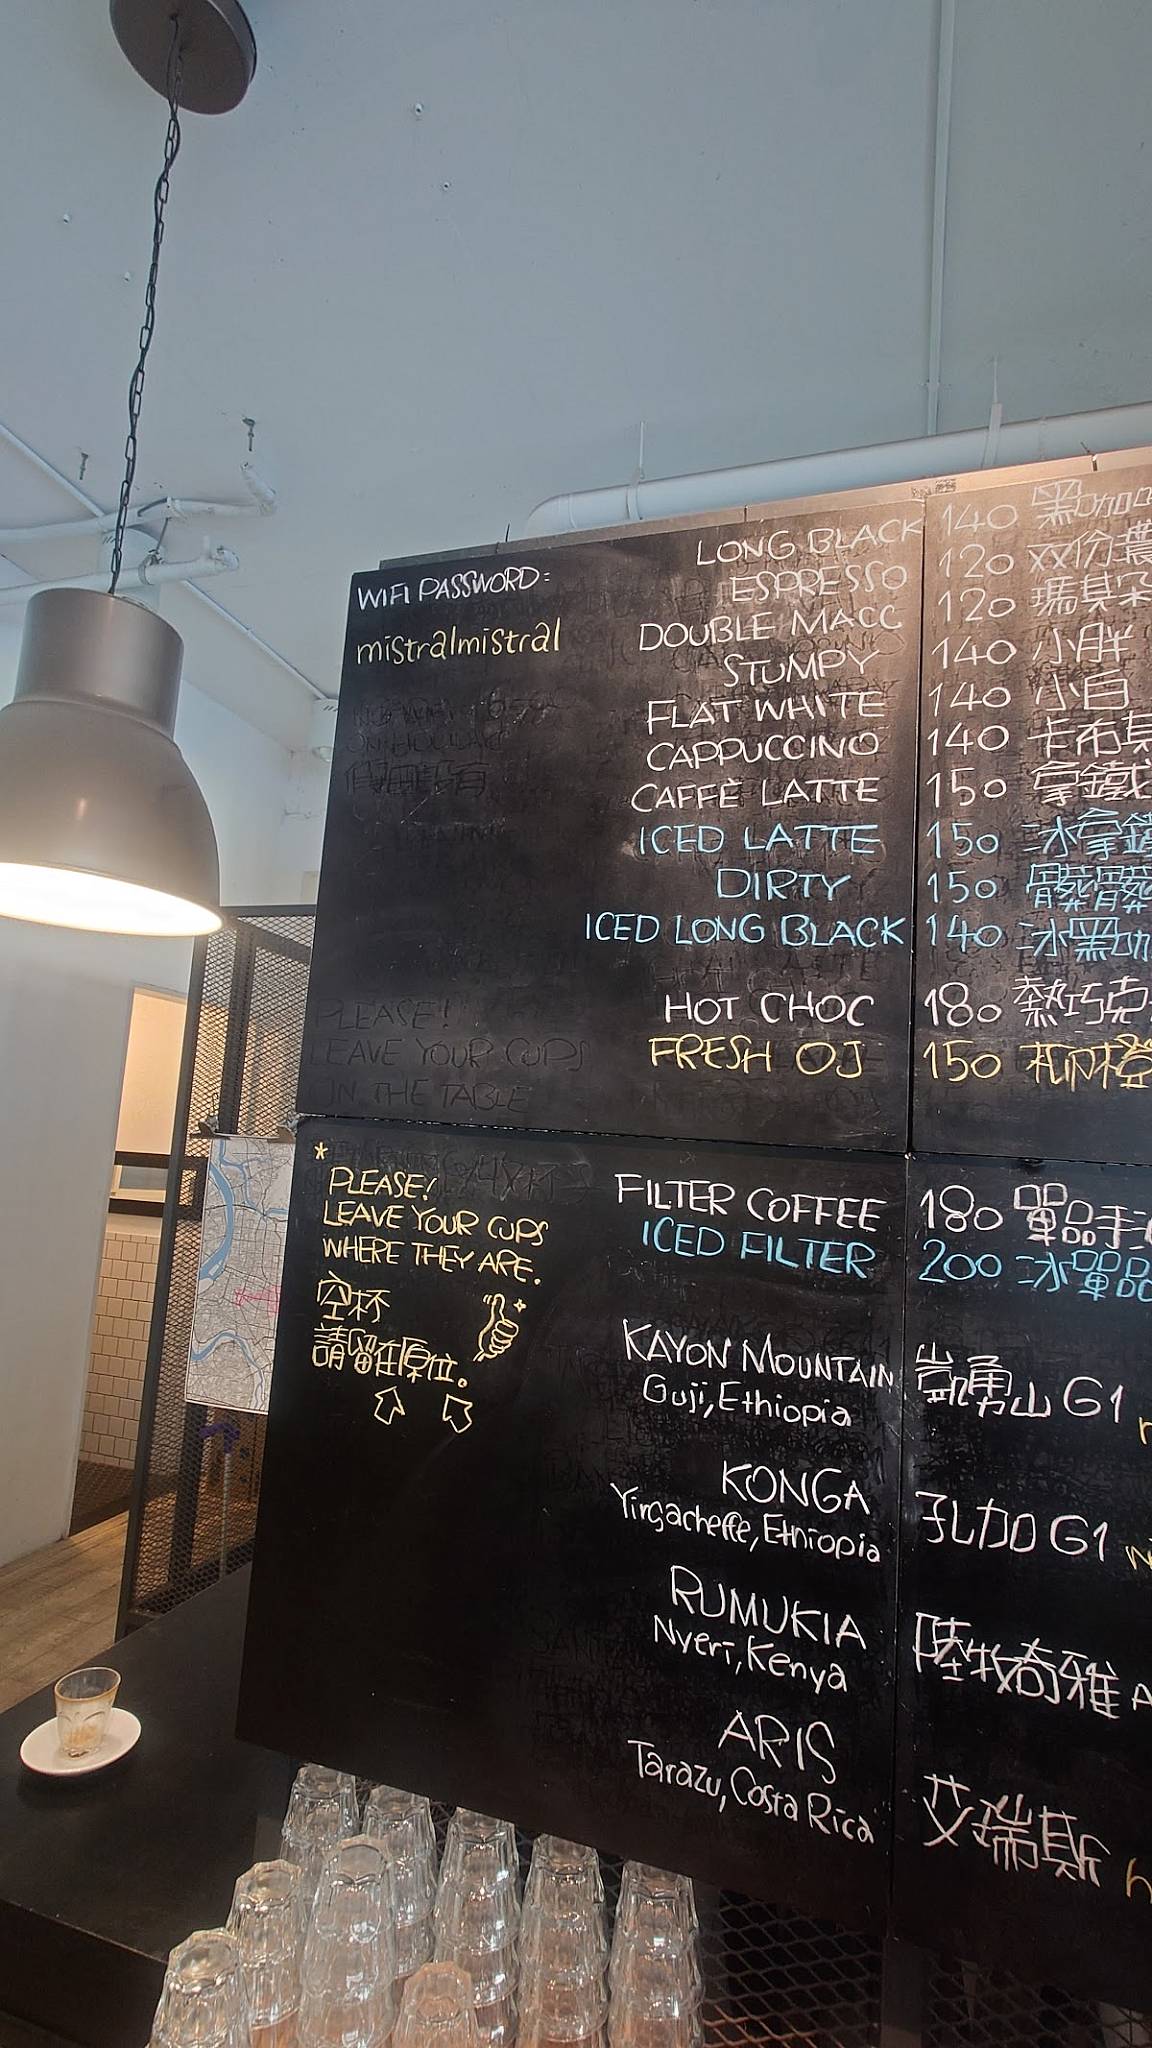 WIFI PASSWORD:
mistralmistral
LONG BLACK 140 黑咖
ESPRESSO 120 双份濃
DOUBLE MACC 120 瑪其朵
STUMPY 140 小胖
FLAT WHITE 140 小白
CAPPUCCINO 140 卡布其
CAFFÈ LATTE 150 拿鐵
ICED LATTE 150 冰拿鐵
DIRTY 150 髒髒
ICED LONG BLACK 140 冰黑咖
HOT CHOC 180 熱巧克
FRESH OJ 150 柳橙
PLEASE!
LEAVE YOUR CUPS
IN THE TABLE
*
PLEASE!
LEAVE YOUR CUPS
WHERE THEY ARE.
空杯
請留在原位。
FILTER COFFEE 180 單品手沖
ICED FILTER 200 冰單品
KAYON MOUNTAIN 凱勇山 G1
Guji, Ethiopia
KONGA 孔加 G1
Yirgacheffe, Ethiopia
RUMUKIA 陸牧奇雅 A
Nyeri, Kenya
ARIS 艾瑞斯
Tarazu, Costa Rica